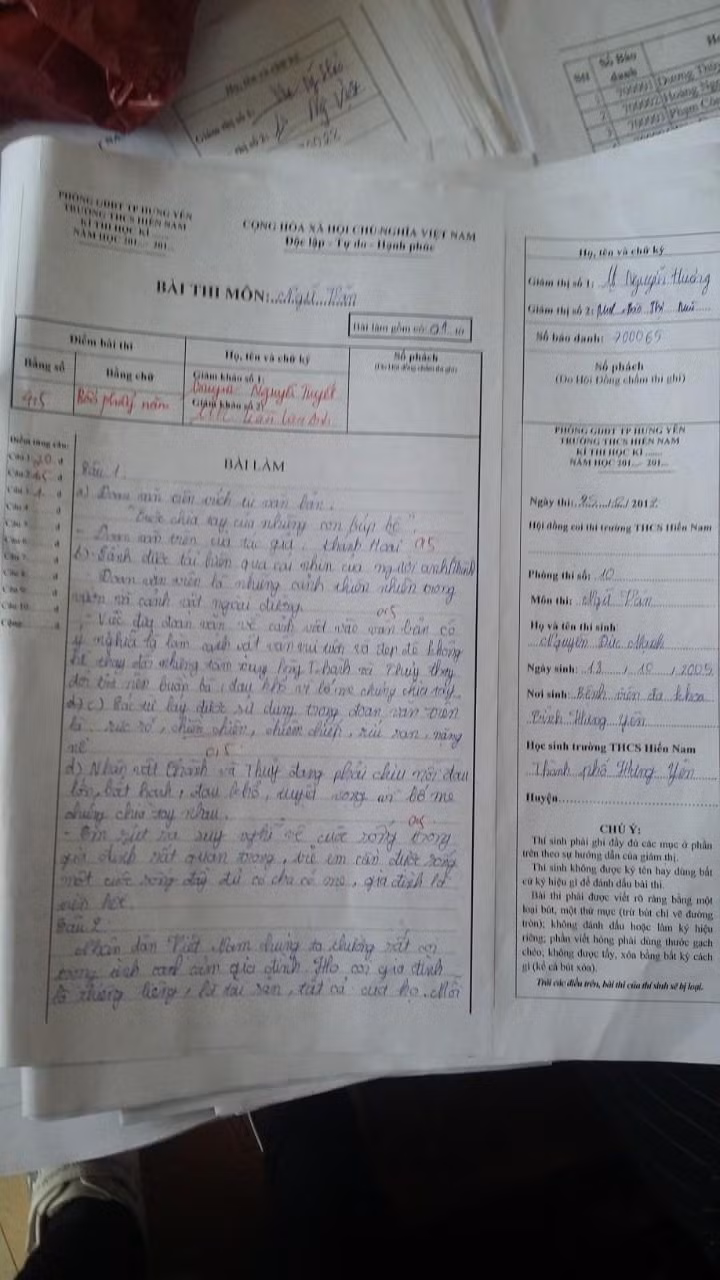 Họ, tên và chữ ký
Giám thị số 1:
Stt
Số Báo danh
1 700001 Dương Thùy
2 700002 Hoàng Ngu
3 700003 Phạm Côn
PHÒNG GDĐT TP HƯNG YÊN
TRƯỜNG THCS HIẾN NAM
KÌ THI HỌC KÌ ......
NĂM HỌC 201... - 201...
CỘNG HÒA XÃ HỘI CHỦ NGHĨA VIỆT NAM
Độc lập - Tự do - Hạnh phúc
BÀI THI MÔN: Ngữ Văn
Bài làm gồm có: 01 tờ
Điểm bài thi
Họ, tên và chữ ký
Số phách
(Do Hội đồng chấm thi ghi)
Bằng số
Bằng chữ
Giám khảo số 1:
Nguyễn Tuyết
4,5
Bốn phẩy năm
Giám khảo số 2:
Trần Lan
Điểm từng câu:
Câu 1: 2,0 đ
Câu 2: 1,5 đ
Câu 3: 1 đ
Câu 4: đ
Câu 5: đ
Câu 6: đ
Câu 7: đ
Câu 8: đ
Câu 9: đ
Câu 10: đ
Cộng: đ
BÀI LÀM
Câu 1.
a) Đoạn văn trên trích từ văn bản.
"Cuộc chia tay của những con búp bê".
- Đoạn văn trên của tác giả. Khánh Hoài 0,5
b) Cảnh được tái hiện qua cái nhìn của người anh (Thành
- Đoạn văn trên là những cảnh thiên nhiên trong
vườn và cảnh vật ngoài đường.
0,5
- Việc đây đoạn văn về cảnh vật vào văn bản có
ý nghĩa là làm cảnh vật vẫn vui tươi và đẹp đẽ không
hề thay đổi nhưng tâm trạng Thành và Thủy thay
đổi trở nên buồn bã, đau khổ vì bố mẹ chúng chia tay.
c) Các từ láy được sử dụng trong đoạn văn trên
là: rực rỡ, chiền chiện, chiêm chiếp, ríu ran, nặng
nề
0,5
d) Nhân vật Thành và Thủy đang phải chịu nỗi đau
lớn, bất hạnh, đau khổ, tuyệt vọng vì bố mẹ
chúng chia tay nhau.
0,5
- Em rút ra suy nghĩ về cuộc sống trong
gia đình rất quan trọng, trẻ em cần được sống
một cuộc sống đầy đủ có cha có mẹ, gia đình là
trên hết.
Câu 2
Nhân dân Việt Nam chúng ta thường rất coi
trọng tình cảm gia đình. Họ coi gia đình
là thiêng liêng, là tài sản, tất cả của họ. Mỗi
Họ, tên và chữ ký
Giám thị số 1: Nguyễn Hương
Giám thị số 2:
Số báo danh: 700065
Số phách
(Do Hội Đồng chấm thi ghi)
PHÒNG GDĐT TP HƯNG YÊN
TRƯỜNG THCS HIẾN NAM
KÌ THI HỌC KÌ ......
NĂM HỌC 201... - 201...
Ngày thi: 25/12/2017
Hội đồng coi thi trường THCS Hiến Nam
Phòng thi số: 10
Môn thi: Ngữ Văn
Họ và tên thí sinh:
Nguyễn Đức Mạnh
Ngày sinh: 13 / 10 / 2005
Nơi sinh: Bệnh viện đa khoa
tỉnh Hưng Yên
Học sinh trường THCS Hiến Nam
Thành phố Hưng Yên
Huyện
CHÚ Ý:
Thí sinh phải ghi đầy đủ các mục ở phần
trên theo sự hướng dẫn của giám thị.
Thí sinh không được ký tên hay dùng bất
cứ ký hiệu gì để đánh dấu bài thi.
Bài thi phải được viết rõ ràng bằng một
loại bút, một thứ mực (trừ bút chì vẽ đường
tròn); không đánh dấu hoặc làm ký hiệu
riêng; phần viết hỏng phải dùng thước gạch
chéo, không được tẩy, xóa bằng bất kỳ cách
gì (kể cả bút xóa).
Trái các điều trên, bài thi của thí sinh sẽ bị loại.